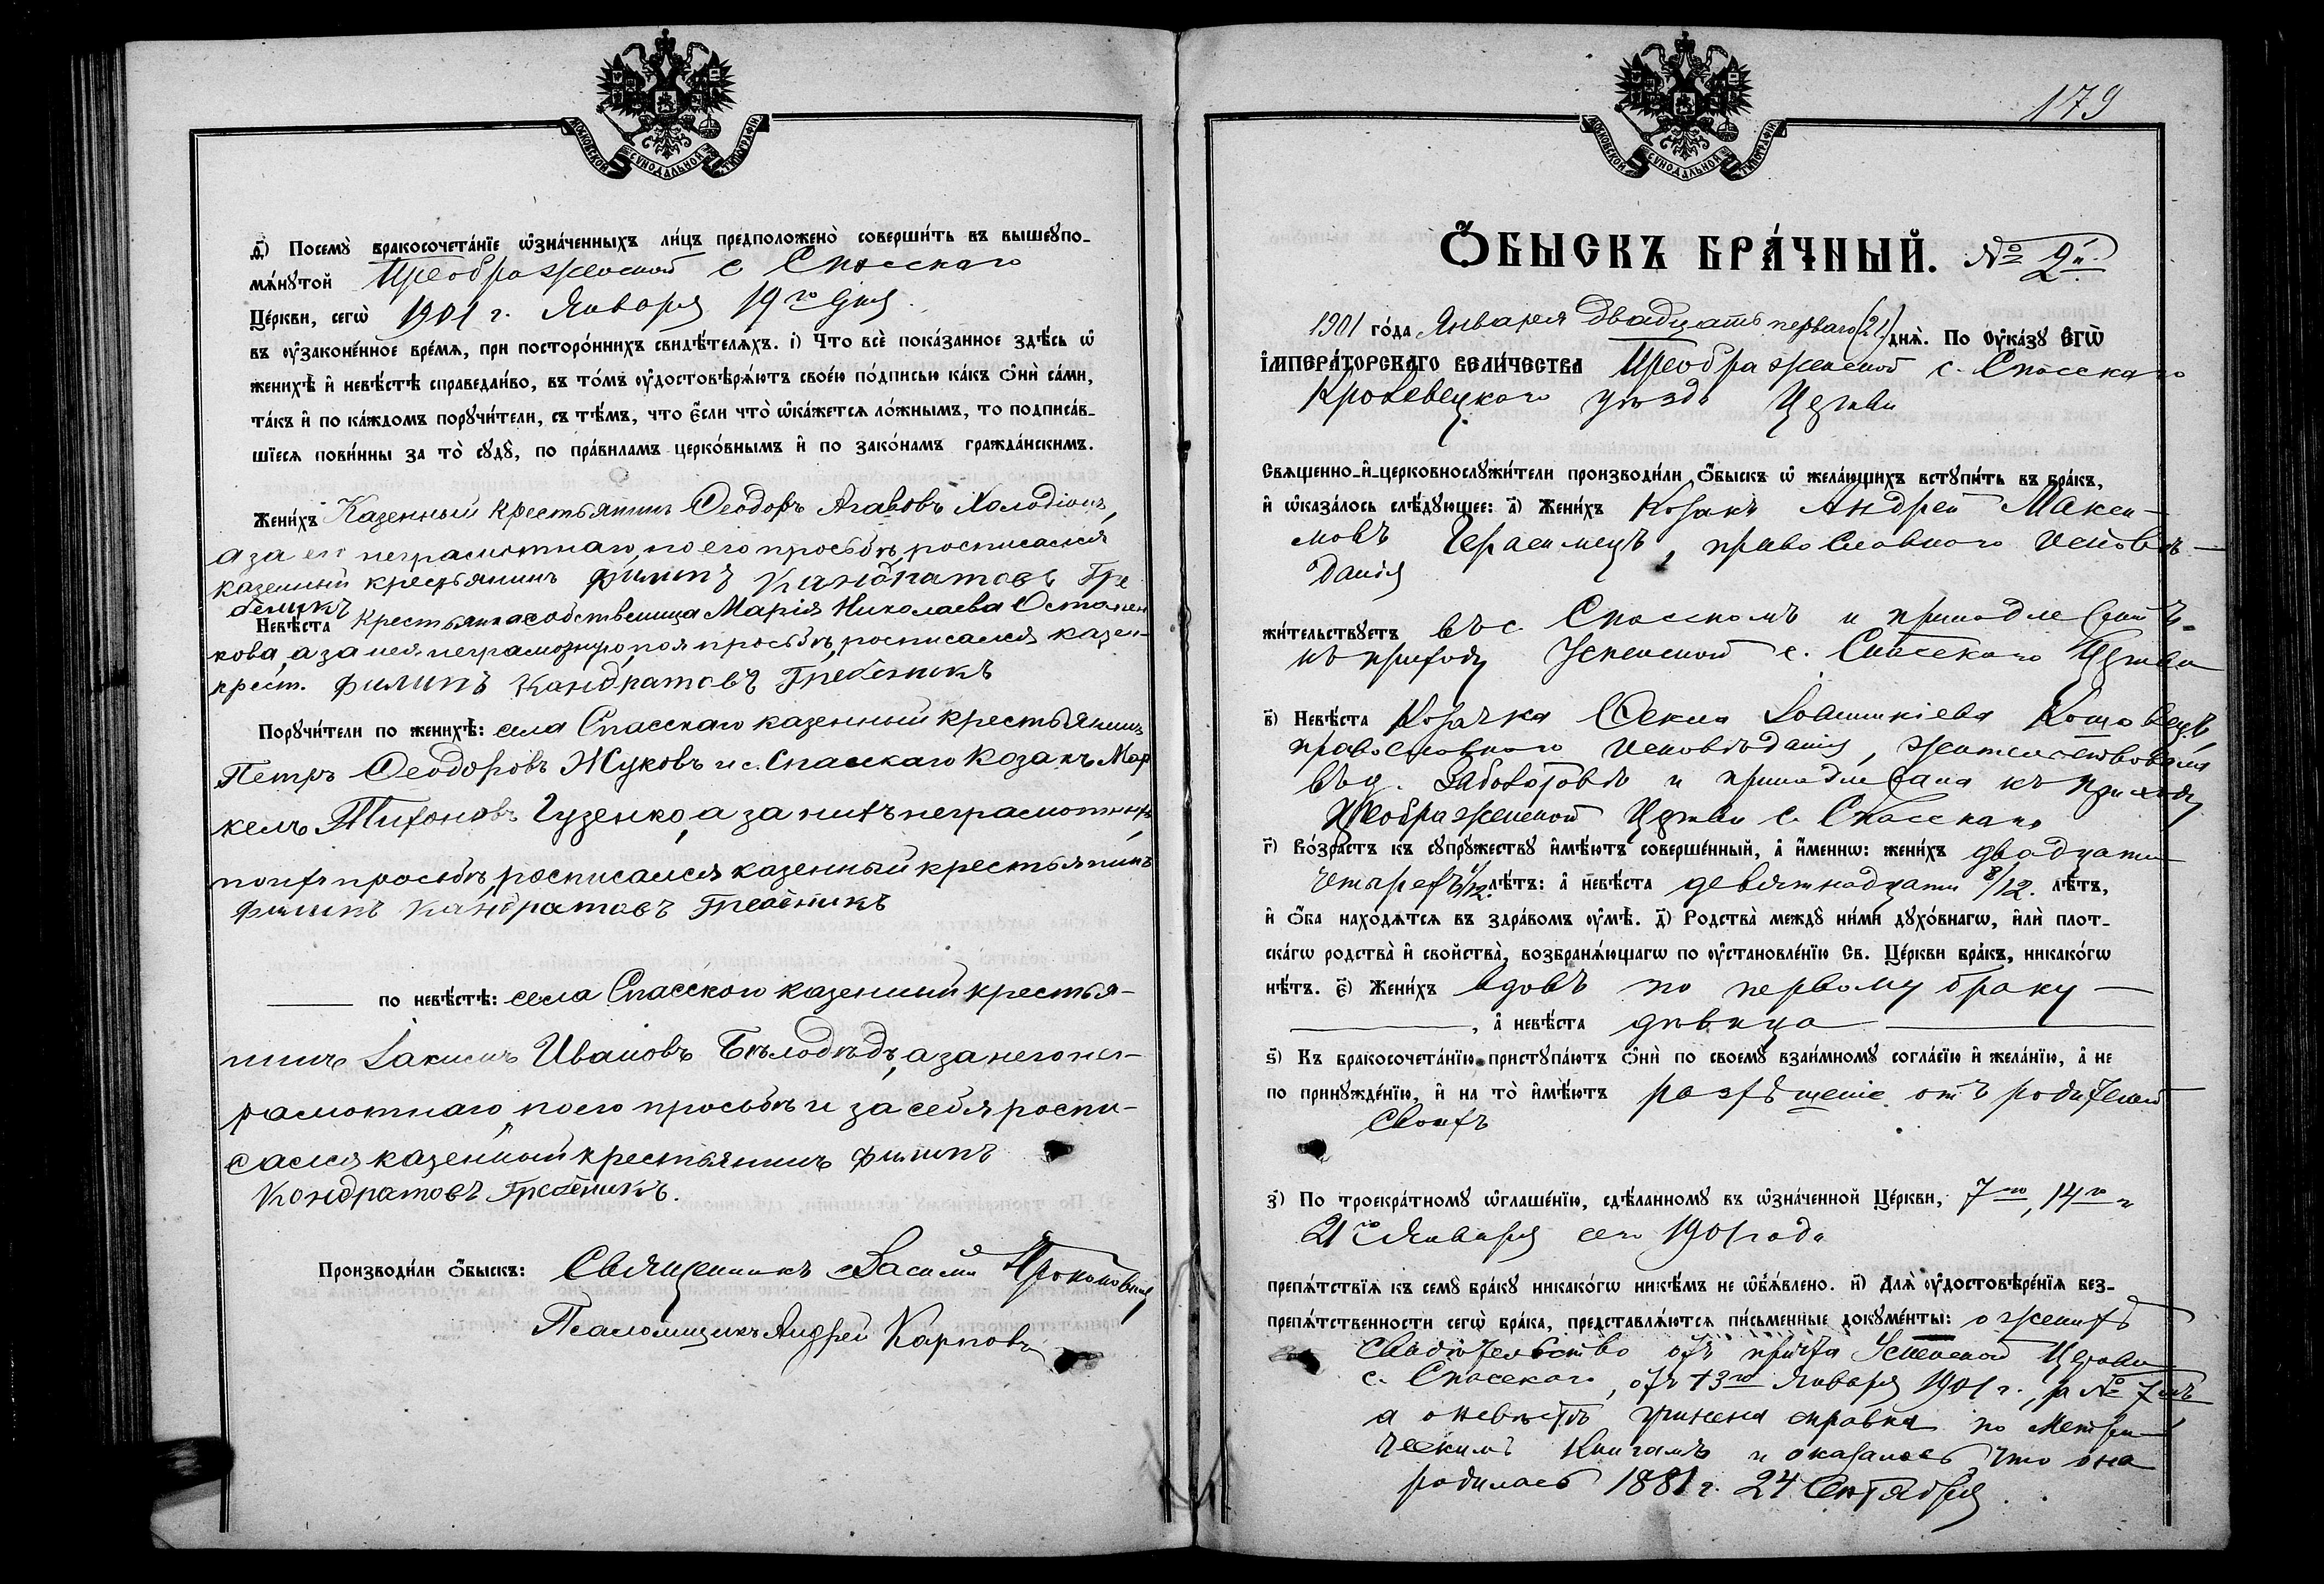 МОСКОВСКОЙ СѴНОДАЛЬНОЙ ТИПОГРАФІИ
д҃) Посемꙋ̀ бракосочета́нїе ѡ҆зна́ченныхъ ли́цъ предположено̀ соверши́ть въ вышеꙋпо-
мѧ́нꙋтой Преображенской с Спасскаго
Це́ркви, сегѡ̀ 1901 г. Января 19го дня.
въ оу҆законе́нное вре́мѧ, при посторо́ннихъ свидѣ́телѧхъ. і) Что всѐ пока́занное здѣ́сь ѡ҆
женихѣ̀ и҆ невѣ́стѣ справедли́во, въ то́мъ оу҆достовѣрѧ́ютъ свое́ю по́дписью ка́къ ѻ҆нѝ са́ми,
та́къ и҆ по ка́ждомъ порꙋчи́тели, съ тѣ́мъ, что е҆́сли что̀ ѡ҆ка́жетсѧ ло́жнымъ, то подписа́в-
шїесѧ пови́нны за то̀ сꙋдꙋ̀, по пра́виламъ церко́внымъ и҆ по зако́намъ гражда́нскимъ.
Жени́хъ Казенный крестьянинъ Ѳеодоръ Агавовъ Холодіонъ,
а за его неграмотнаго, по его просьбѣ, росписался
казенный крестьянинъ Филипъ Кандратовъ Гре
беникъ
Невѣ́ста Крестьянка собственница Марія Николаева Остапен
кова, а за нея неграмотную, по ея просьбѣ, росписался казен-
крест. Филипъ Кандратовъ Гребеникъ
Порꙋчи́тели по женихѣ̀: села Спасскаго казенный крестьянинъ
Петръ Ѳеодоровъ Жуковъ и с. Спасскаго Козакъ Мар
келъ Тихоновъ Гузенко, а за нихъ неграмотныхъ,
по ихъ просьбѣ, росписался казенный крестьянинъ
Филипъ Кандратовъ Гребеникъ
по невѣ́стѣ: села Спасского казенный крестья-
нинъ Іакимъ Ивановъ Бѣлодѣдъ, а за него нег-
рамотнаго, по его просьбѣ и за себя роспи-
сался казенный крестьянинъ Филипъ
Кондратовъ Гребеникъ.
Производи́ли ѻ҆́быскъ: Священникъ Василій Прокоповичъ
Псаломщикъ Андрей Карповъ
179
МОСКОВСКОЙ СѴНОДАЛЬНОЙ ТИПОГРАФІИ
Ѻ҆́БЫСКЪ БРА́ЧНЫЙ. № 2й.
1901 го́да Января двадцать перваго (21) днѧ̀. По оу҆ка́зꙋ Е҆ГѠ̀
І҆МПЕРА́ТОРСКАГО ВЕЛИ́ЧЕСТВА Преображенской с. Спасскаго
Кролевецкаго уѣзда Церкви
Свѧщенно-и҆-церковнослꙋжи́тели производи́ли ѻ҆́быскъ ѡ҆ жела́ющихъ встꙋпи́ть въ бра́къ,
и҆ ѡ҆каза́лось слѣ́дꙋющее: а҃) Жени́хъ Козакъ Андрей Макси-
мовъ Герасимецъ, православнаго исповѣ-
данія
жи́тельствꙋетъ въ с. Спасскомъ и принадлежитъ
къ приходу Успенской с. Спасского Церкви
в҃) Невѣ́ста Козачка Ѳекла Іоанникіева
православного исповѣданія, жительствовала
въ д. Заболотовѣ и принадлежала къ приходу
Преображенской Церкви с. Спасскаго
г҃) Во́зрастъ къ сꙋпрꙋ́жествꙋ и҆мѣ́ютъ соверше́нный, а҆ и҆́меннѡ: жени́хъ двадцати
четырехъ 1/12. лѣ́тъ: а҆ невѣ́ста девятнадцати 8/12. лѣ́тъ,
и҆ ѻ҆́ба нахо́дѧтсѧ въ здра́вомъ оу҆мѣ̀. д҃) Родства̀ междꙋ̀ ни́ми дꙋхо́внагѡ, и҆лѝ плот-
ска́гѡ родства̀ и҆ свойства̀, возбранѧ́ющагѡ по оу҆становле́нїю Св. Це́ркви бра́къ, никако́гѡ
нѣ́тъ. е҃) Жени́хъ вдовъ по первому браку
, а҆ невѣ́ста дѣвица
ѕ҃) Къ бракосочета́нїю пристꙋпа́ютъ ѻ҆нѝ по своемꙋ̀ взаи́мномꙋ согла́сїю и҆ жела́нїю, а҆ не
по принꙋжде́нїю, и҆ на то̀ и҆мѣ́ютъ разрѣшеніе отъ родителей
своихъ
з҃) По троекра́тномꙋ ѡ҆глаше́нїю, сдѣ́ланномꙋ въ ѡ҆зна́ченной Це́ркви, 7го, 14го и
21го Января сего 1901 года
препѧ́тствїѧ къ семꙋ̀ бра́кꙋ никако́гѡ никѣ́мъ не ѡ҆б̾ѧ́влено. и҃) Длѧ̀ оу҆достовѣре́нїѧ без-
препѧ́тственности сегѡ̀ бра́ка, представлѧ́ютсѧ пи́сьменные докꙋме́нты: о женихѣ
свидѣтельство отъ причта Успенской Церкви
с. Спасскаго, отъ 13го Января 1901 г., за № 7мъ
а о невѣстѣ учинена справка по Метри-
ческимъ Книгамъ и оказалось что она
родилась 1881 г. 24 Сентября.